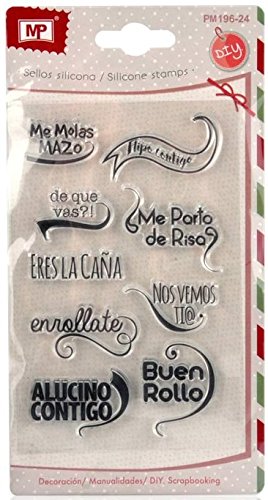 MP
PM196-24
Sellos silicona / Silicone stamps
DIY
Me Molas
MAZO
Flipo contigo
de que
vas?!
Me Parto
de Risa
ERES LA CAÑA
NOS VEMOS
TI@
enrollate
ALUCINO
CONTIGO
BUEN
ROLLO
Decoración/ Manualidades/ DIY. Scrapbooking